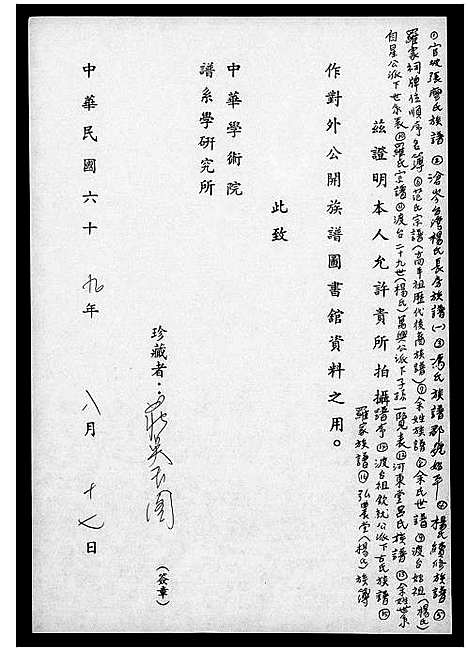 ①官坡張廖氏族譜 ②滄岑台灣楊氏長房族譜(一) ③馮氏族譜郡號始平 ④楊氏續修族譜 ⑤
羅家祠牌位順序名簿 ⑥范氏宗譜(高平祖歷代後裔族譜) ⑦余姓族譜 ⑧余氏世譜 ⑨渡台始祖(楊氏)
自星公派下世系表 ⑩羅氏宗譜 ⑪渡台二十九世(楊氏)萬興公派下子孫一覽表 ⑫河東堂呂氏族譜 ⑬余姓世系
譜序 ⑭渡台祖欽就公派下古氏族譜 ⑮
羅家族譜 ⑯弘農堂(楊氏)族簿
茲證明本人允許貴所拍攝
作對外公開族譜圖書館資料之用。
此致
中華學術院
譜系學研究所
珍藏者:莊吳玉圖
(簽章)
中華民國六十九年八月十七日